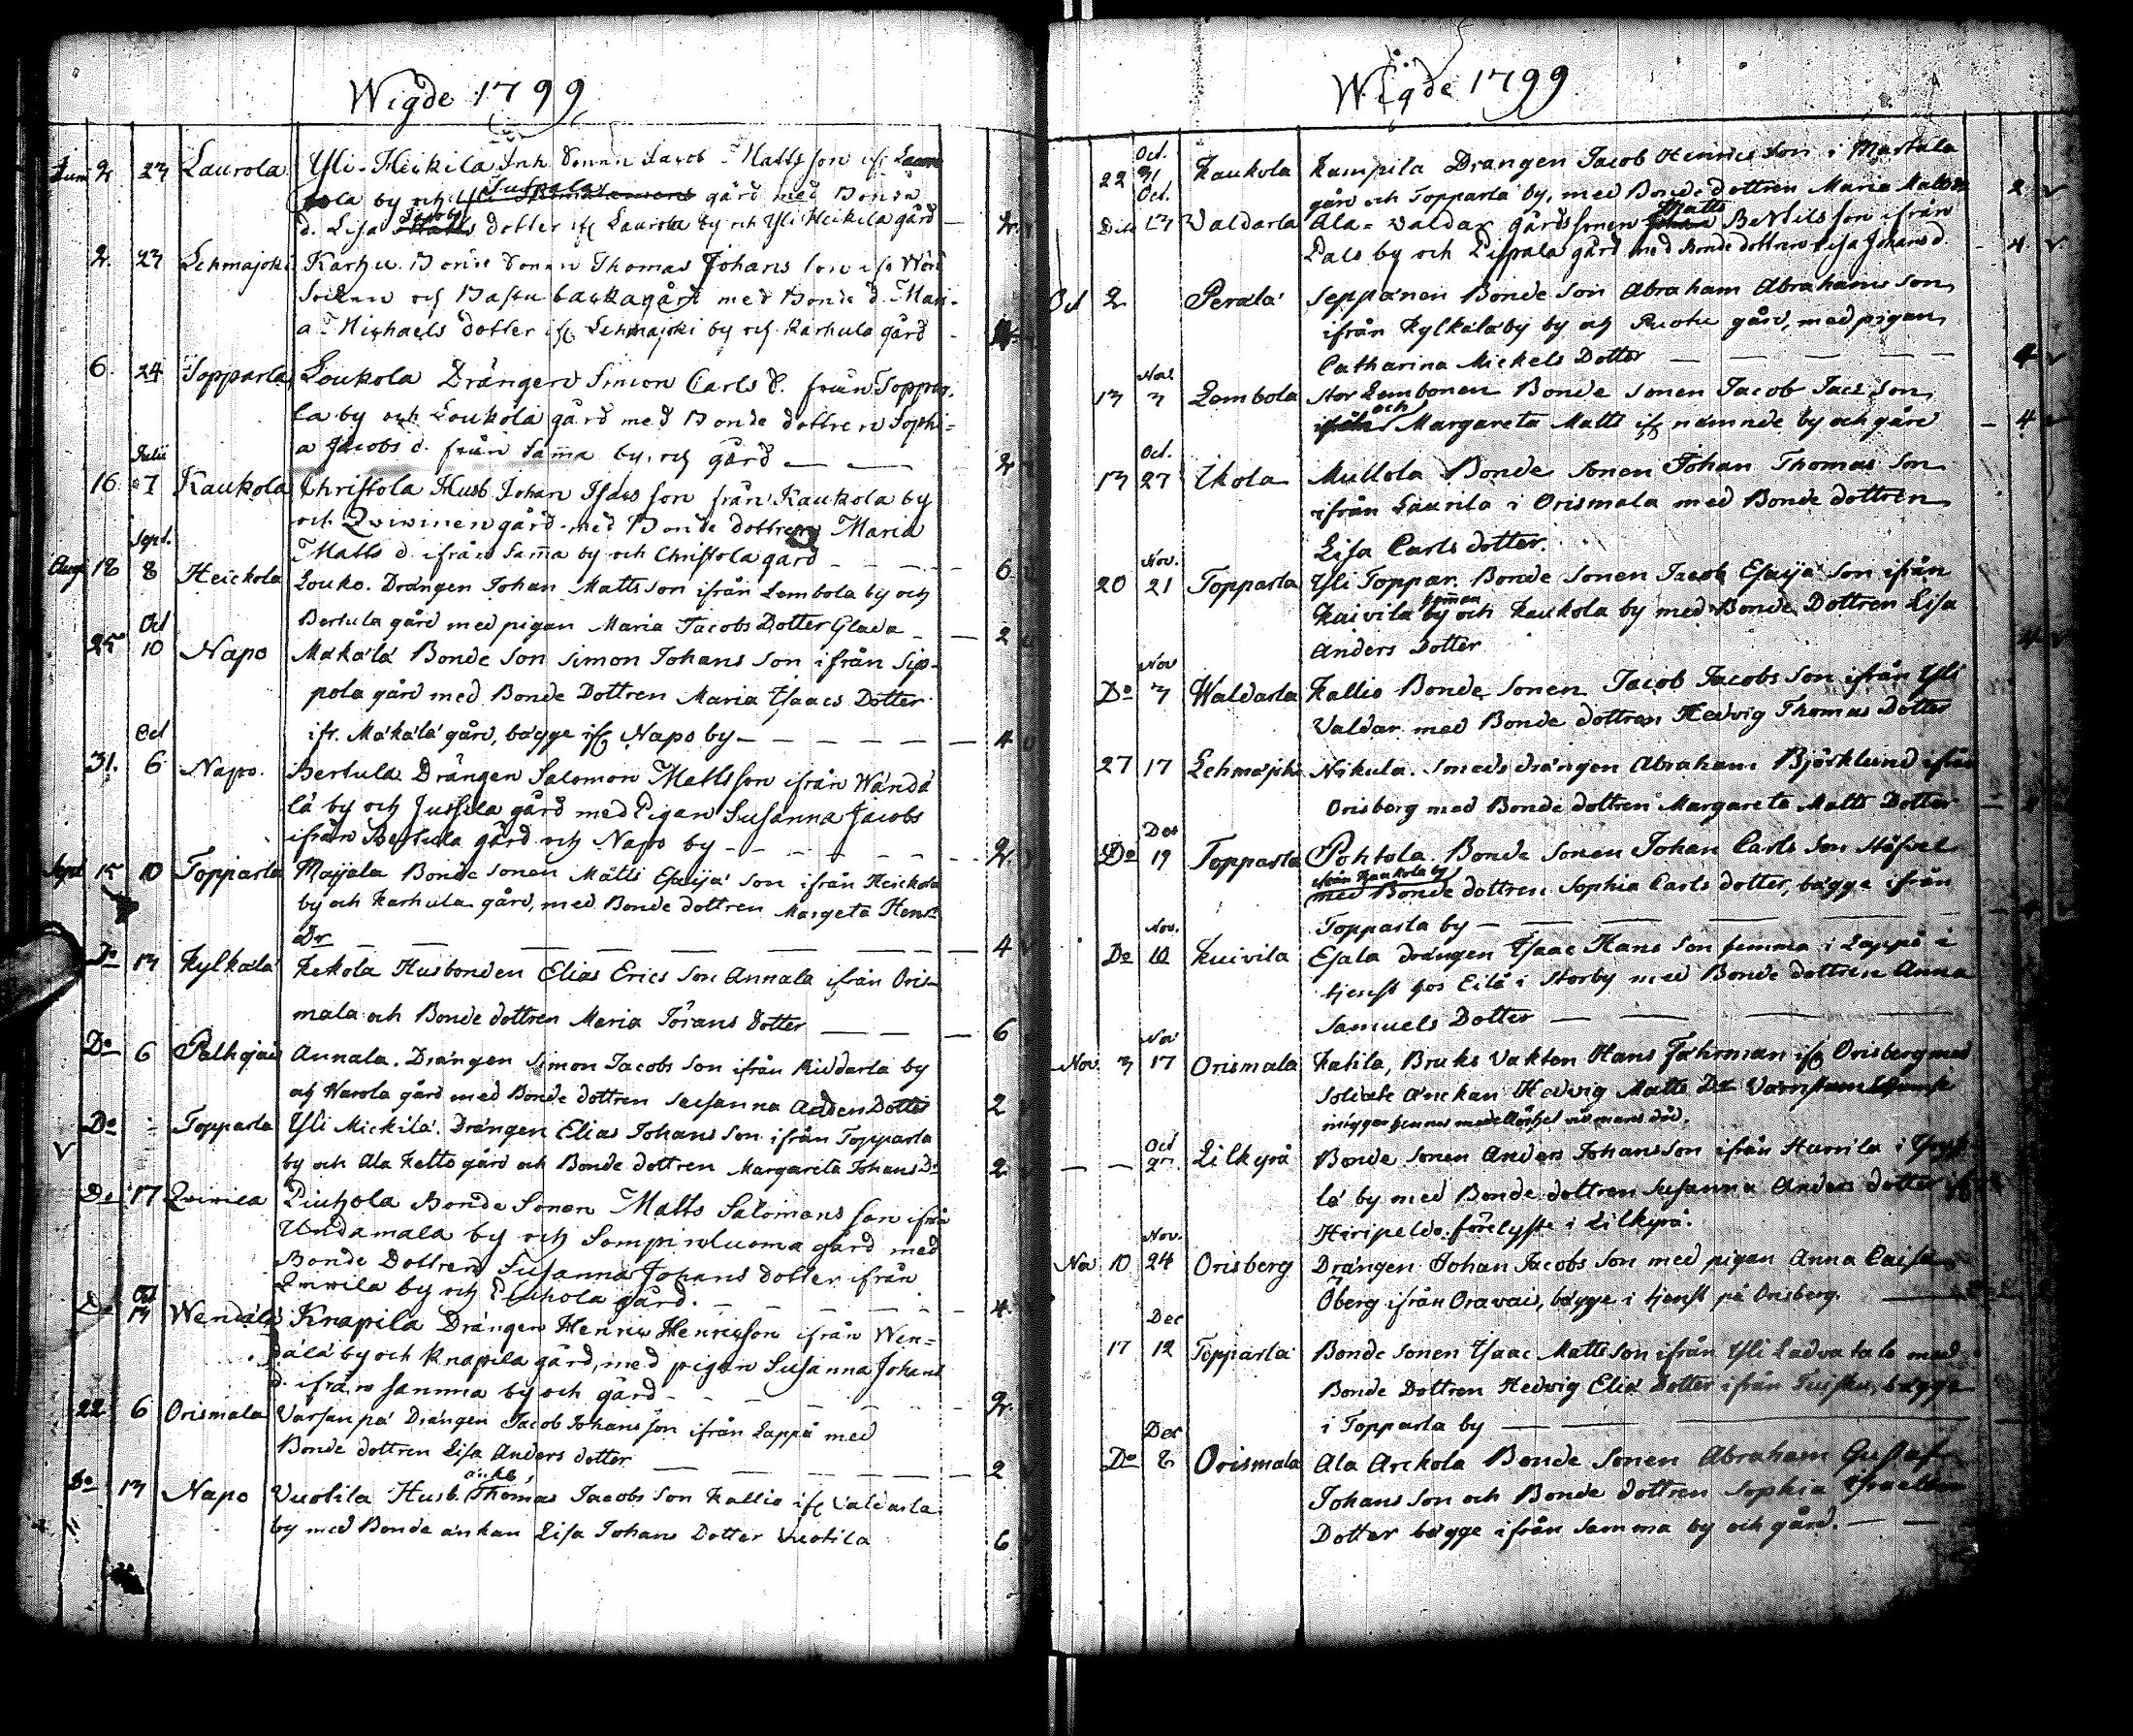 Wigde 1799
Juni 2. 23 Laurola Yli-Heikila Inh. Sonen Jacob Matts son if: Lauro
Juspala
la by och gård med Bonde
Jacobs
d. Lisa dotter if: Laurola by och Yli Heikila gård — 2.
2. 23 Lehmajoki Karhu. Bonde Sonen Thomas Johans son if: Wörå
Socken och gård med Bonde d. Mari-
a Michaels dotter if: Lehmajoki by och Karhula gård
6. 24 Topparla Loukola Drängen Simon Carls S. från Toppar-
la by och Loukola gård med Bonde dottren Sophi-
a Jacobs d. från sama by, och gård — — 2
Julii
16. 7 Kaukola Christola Husb. Johan Isacs son från Kaukola by
och Qvivinen gård med Bonde dottren Maria
Matts d. ifrån sama by och Christola gård — — 6
Sept.
Aug. 18 8 Heickola Louko. Drängen Johan Matts son ifrån Lembola by och
Bertula gård med pigan Maria Jacobs Dotter Glada — 2
Oct
25 10 Napo Mäkälä Bonde Son Simon Johans Son ifrån Sip-
pola gård med Bonde Dottren Maria Isaacs Dotter
ifr. Mäkälä gård, bägge if: Napo by — — — 4
Oct
31. 6 Napo. Bertula Drängen Salomon Matts son ifrån Wändä
lä by och Jussila gård med Pigan Susanna Jacobs
ifrån Bertula gård och Napo by — — — 2.
Sept 15 10 Topparla Maijala Bonde Sonen Matti Esaijæ Son ifrån Heickola
by och Karhula gård, med Bonde dottren Margeta Henr:
Dr — — — 4
Do 13 Kylkälä Kekola Husbonden Elias Erics Son Annala ifrån Oris-
mala och Bonde dottren Maria Jörans Dotter — — 6
Do 6 Palhojais Annala. Drängen Simon Jacobs Son ifrån Riddarla by
och Warola gård med Bonde dottren Susanna Anders Dotter 2
Do - Topparla Yli Mickilä. Drängen Elias Johans Son ifrån Topparla
by och Ala Ketto gård och Bonde dottren Margareta Johans Dr 2
Do 17 Qvivila Piuhola Bonde Sonen Matts Salomons son ifrån
Undamala by och Sompinluoma gård med
Bonde Dottren Susanna Johans dotter ifrån
Qvivila by och Piuhola gård. — — — 4
Oct
Do 13 Wendälä Knapila Drängen Henric Henricsson ifrån Wen-
dälä by och Knapila gård, med pigan Susanna Johans
d. ifrån samma by och gård — — — 2.
22 6 Orismala Varsanpä Drängen Jacob Johans son ifrån Lappå med
Bonde dottren Lisa Anders dotter — — — 2
änkl.
Do 13 Napo Vuotila Husb. Thomas Jacobs Son Kallio if: Valdarla
by med Bonde änkan Lisa Johans Dotter Vuotila 6
Wigde 1799
Oct.
22 31 Kaukola Kampila Drängen Jacob Henrics Son i Martala
gård och Topparla by, med Bonde dottren Maria Matts 2
Oct. Matts
Dito 13 Valdarla Ala-Valdar Gårdssonen Bertils son ifrån
Pals by och Pispala gård med Bonde dottren Lisa Johans d. 4
Oct 2 Perälä Seppänen Bonde Son Abraham Abrahams son
ifrån Kylkälä by och Ruotu gård, med pigan
Catharina Mickels Dotter — — — 4
Nov.
13 3 Lembola Stor Lembonen Bonde sonen Jacob Jacs son
och
Margareta Matts if: nämnde by och gård — 4
Oct.
13 27 Ikola Mullola Bonde sonen Johan Thomas son
ifrån Laurila i Orismala med Bonde dottren
Lisa Carls dotter.
Nov.
20 21 Topparla Yli Toppar. Bonde Sonen Jacob Esaijæ son ifrån
heman
Kuivila by och Kaukola by med Bonde Dottren Lisa
Anders Dotter 4
Nov
Do 3 Waldarla Kallio Bonde sonen Jacob Jacobs Son ifrån Yli
Valdar med Bonde dottren Hedvig Thomas Dotter
27 17 Lehmajoki Nikula. Smeds drängen Abraham Björklund ifrån
Orisberg med Bonde dottren Margareta Matts Dotter —
Dec
Do 19 Topparla Pohtola. Bonde Sonen Johan Carls Son
ifrån Kaukola by
med Bonde dottren Sophia Carls dotter, bägge ifrån
Topparla by — — —
Nov.
Do 10 Kuivila Esala drängen Isaac Hans Son hemma i Lappå i
tjenst hos Eilä i Storby med Bonde dottren Anna
Samuels Dotter — — —
Nov
Nov 3 17 Orismala Katila, Bruks Vakten Hans Fährman if: Orisberg med
Soldate änckan Hedvig Matts Dr
Oct
— — 27. Lilkyrå Bonde Sonen Anders Johansson ifrån Hurrila i
lä by med Bonde dottren Susanna Anders dotter if:
Hiripeldo. förelyste i Lilkyrå.
Nov.
Nov 10 24 Orisberg Drängen Johan Jacobs Son med pigan Anna Caisa
Öberg ifrån Oravais, bägge i tjenst på Orisberg. —
Dec
17 12 Topparla Bonde Sonen Isaac Matts son ifrån Yli Ladvatalo med
Bonde Dottren Hedvig Eliæ Dotter ifrån Tuisku, bägge
i Topparla by — — —
Dec
Do 8 Orismala Ala Arckola Bonde Sonen Abraham Gustaf
Johans Son och Bonde dottren Sophia Israels
Dotter bägge ifrån samma by och gård. — —